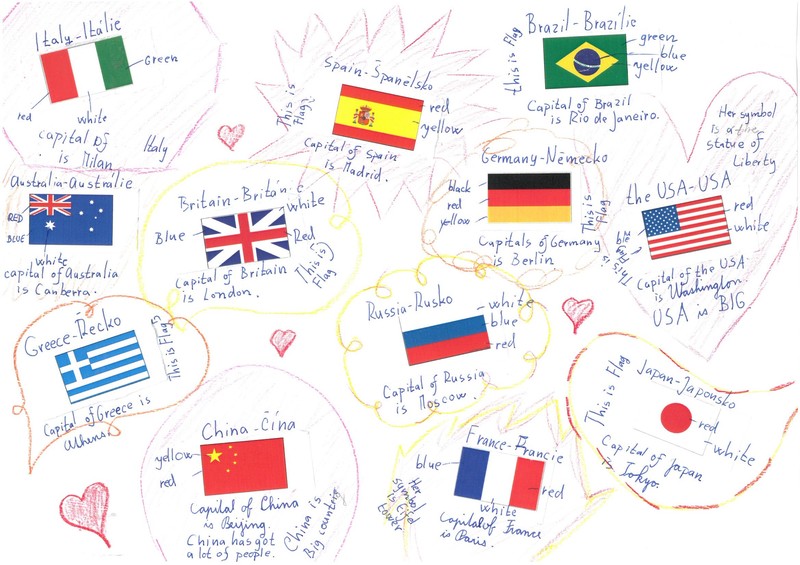 Italy-Itálie
Green
red
white
capital of
is Milan.
Italy
Spain-Španělsko
This is
Flag.
red
yellow
Capital of Spain
is Madrid.
Brazil-Brazílie
this is Flag
green
blue
yellow
Capital of Brazil
is Rio de Janeiro.
Her symbol
is a
statue of
Liberty
Australia-Austrálie
RED
BLUE
white
capital of Australia
is Canberra.
Britain-Británie
white
Blue
Red
This is
Flag
Capital of Britain
is London.
Germany-Německo
black
red
yellow
This is
Flag
Capitals of Germany
is Berlin
the USA-USA
red
white
This is
Flag
Capital of the USA
is Washington
USA is BIG.
Greece-Řecko
This is Flag
Capital of Greece is
Athens.
Russia-Rusko
white
blue
red
Capital of Russia
is Moscow.
Japan-Japonsko
This is Flag
red
white
Capital of Japan
is Tokyo.
China-Čína
yellow
red
Capital of China
is Beijing.
China has got
a lot of people.
China is
Big country
France-Francie
blue
red
white
Her
symbol
is Eifel
tower
Capital of France
is Paris.